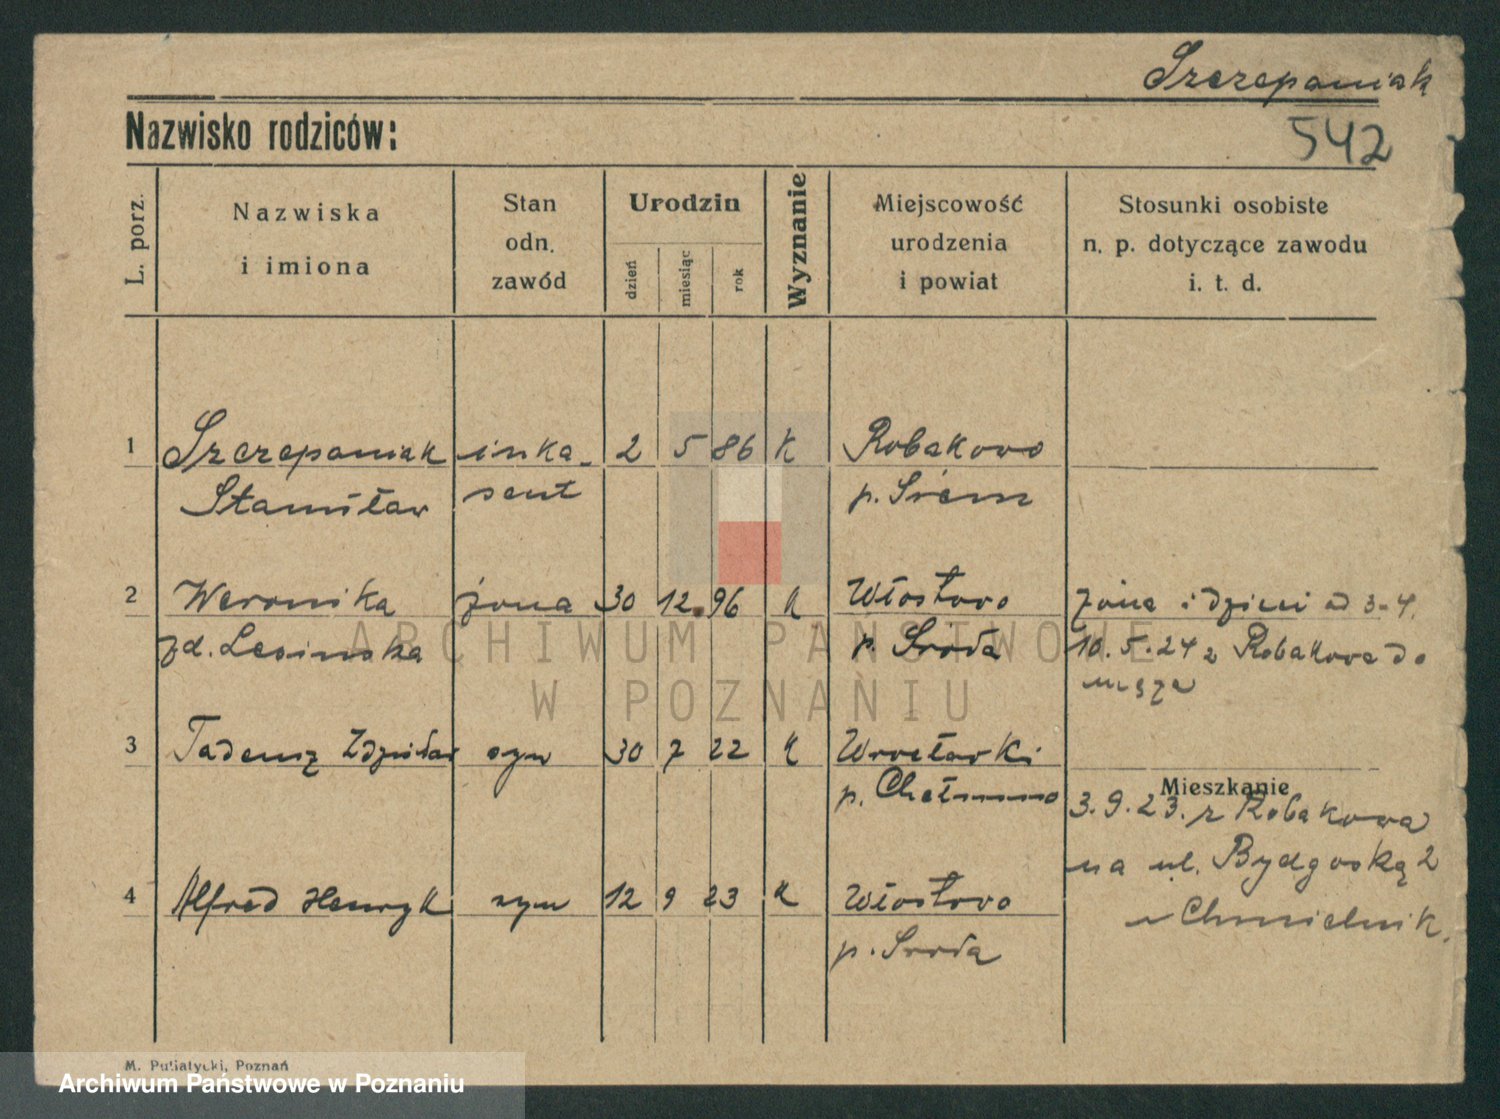 Szczepaniak
Nazwisko rodziców:
542
L. porz.
Nazwiska
i imiona
Stan
odn.
zawód
Urodzin
dzień
miesiąc
rok
Wyznanie
Miejscowość
urodzenia
i powiat
Stosunki osobiste
n. p. dotyczące zawodu
i. t. d.
1 Szczepaniak inka- 2 5 86 K Robakowo
Stanisław sent p. Śrem
2 Weronika żona 30 12.96 K Włostowo żona i dzieci od 3-4.
zd. Lesinska p. Środa 10.5.24 z Robakowa do
męża
3 Tadeusz Zdzisław syn 30 7 22 K Wrocławki
p. Chełmno
Mieszkanie
3.9.23. z Robakowa
na ul. Bydgoską 2
4 Alfred Henryk syn 12 9 23 K Włostowo
Chmielnik.
p. Środa
ARCHIWUM PAŃSTWOWE
W POZNANIU
M. Putiatycki, Poznań
Archiwum Państwowe w Poznaniu